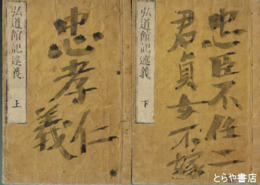 弘道館記述義 上
忠孝仁
義
弘道館記述義 下
忠臣不仕二
君貞女不嫁
とらや書店